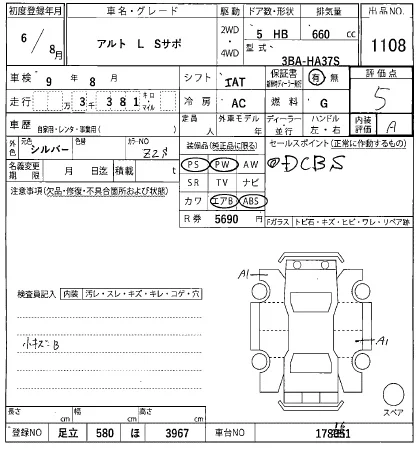 初度登録年月 車名・グレード 駆動 ドア数・形状 排気量 出品NO.
6/8月 アルト L Sサポ 2WD・4WD 5 HB 660 cc 1108
型式 3BA-HA37S
車検 9年 8月 シフト IAT 保証書 有 無 評価点
走行 万 3千 381 キロ・マイル 冷房 AC 燃料 G 5
車歴 自家用・レンタ・事業用( ) 定員 人 外車モデル 年 ディーラー・並行 ハンドル 左・右 内装評価 A
外色 元色 シルバー 色替 カラーNO Z2S 装備品(純正品に限る) セールスポイント(正常に作動するもの)
名義変更期限 月 日迄 積載 t PS PW AW @DCBS
注意事項(欠品・修復・不具合箇所および状態) SR TV ナビ
カワ エアB ABS
R券 5690 円 Fガラス トビ石・キズ・ヒビ・ワレ・リペア跡
A1
検査員記入 内装 汚レ・スレ・キズ・キレ・コゲ・穴
小キズB
A1
スペア
長さ cm 幅 cm 高さ cm
登録NO 足立 580 ほ 3967 車台NO